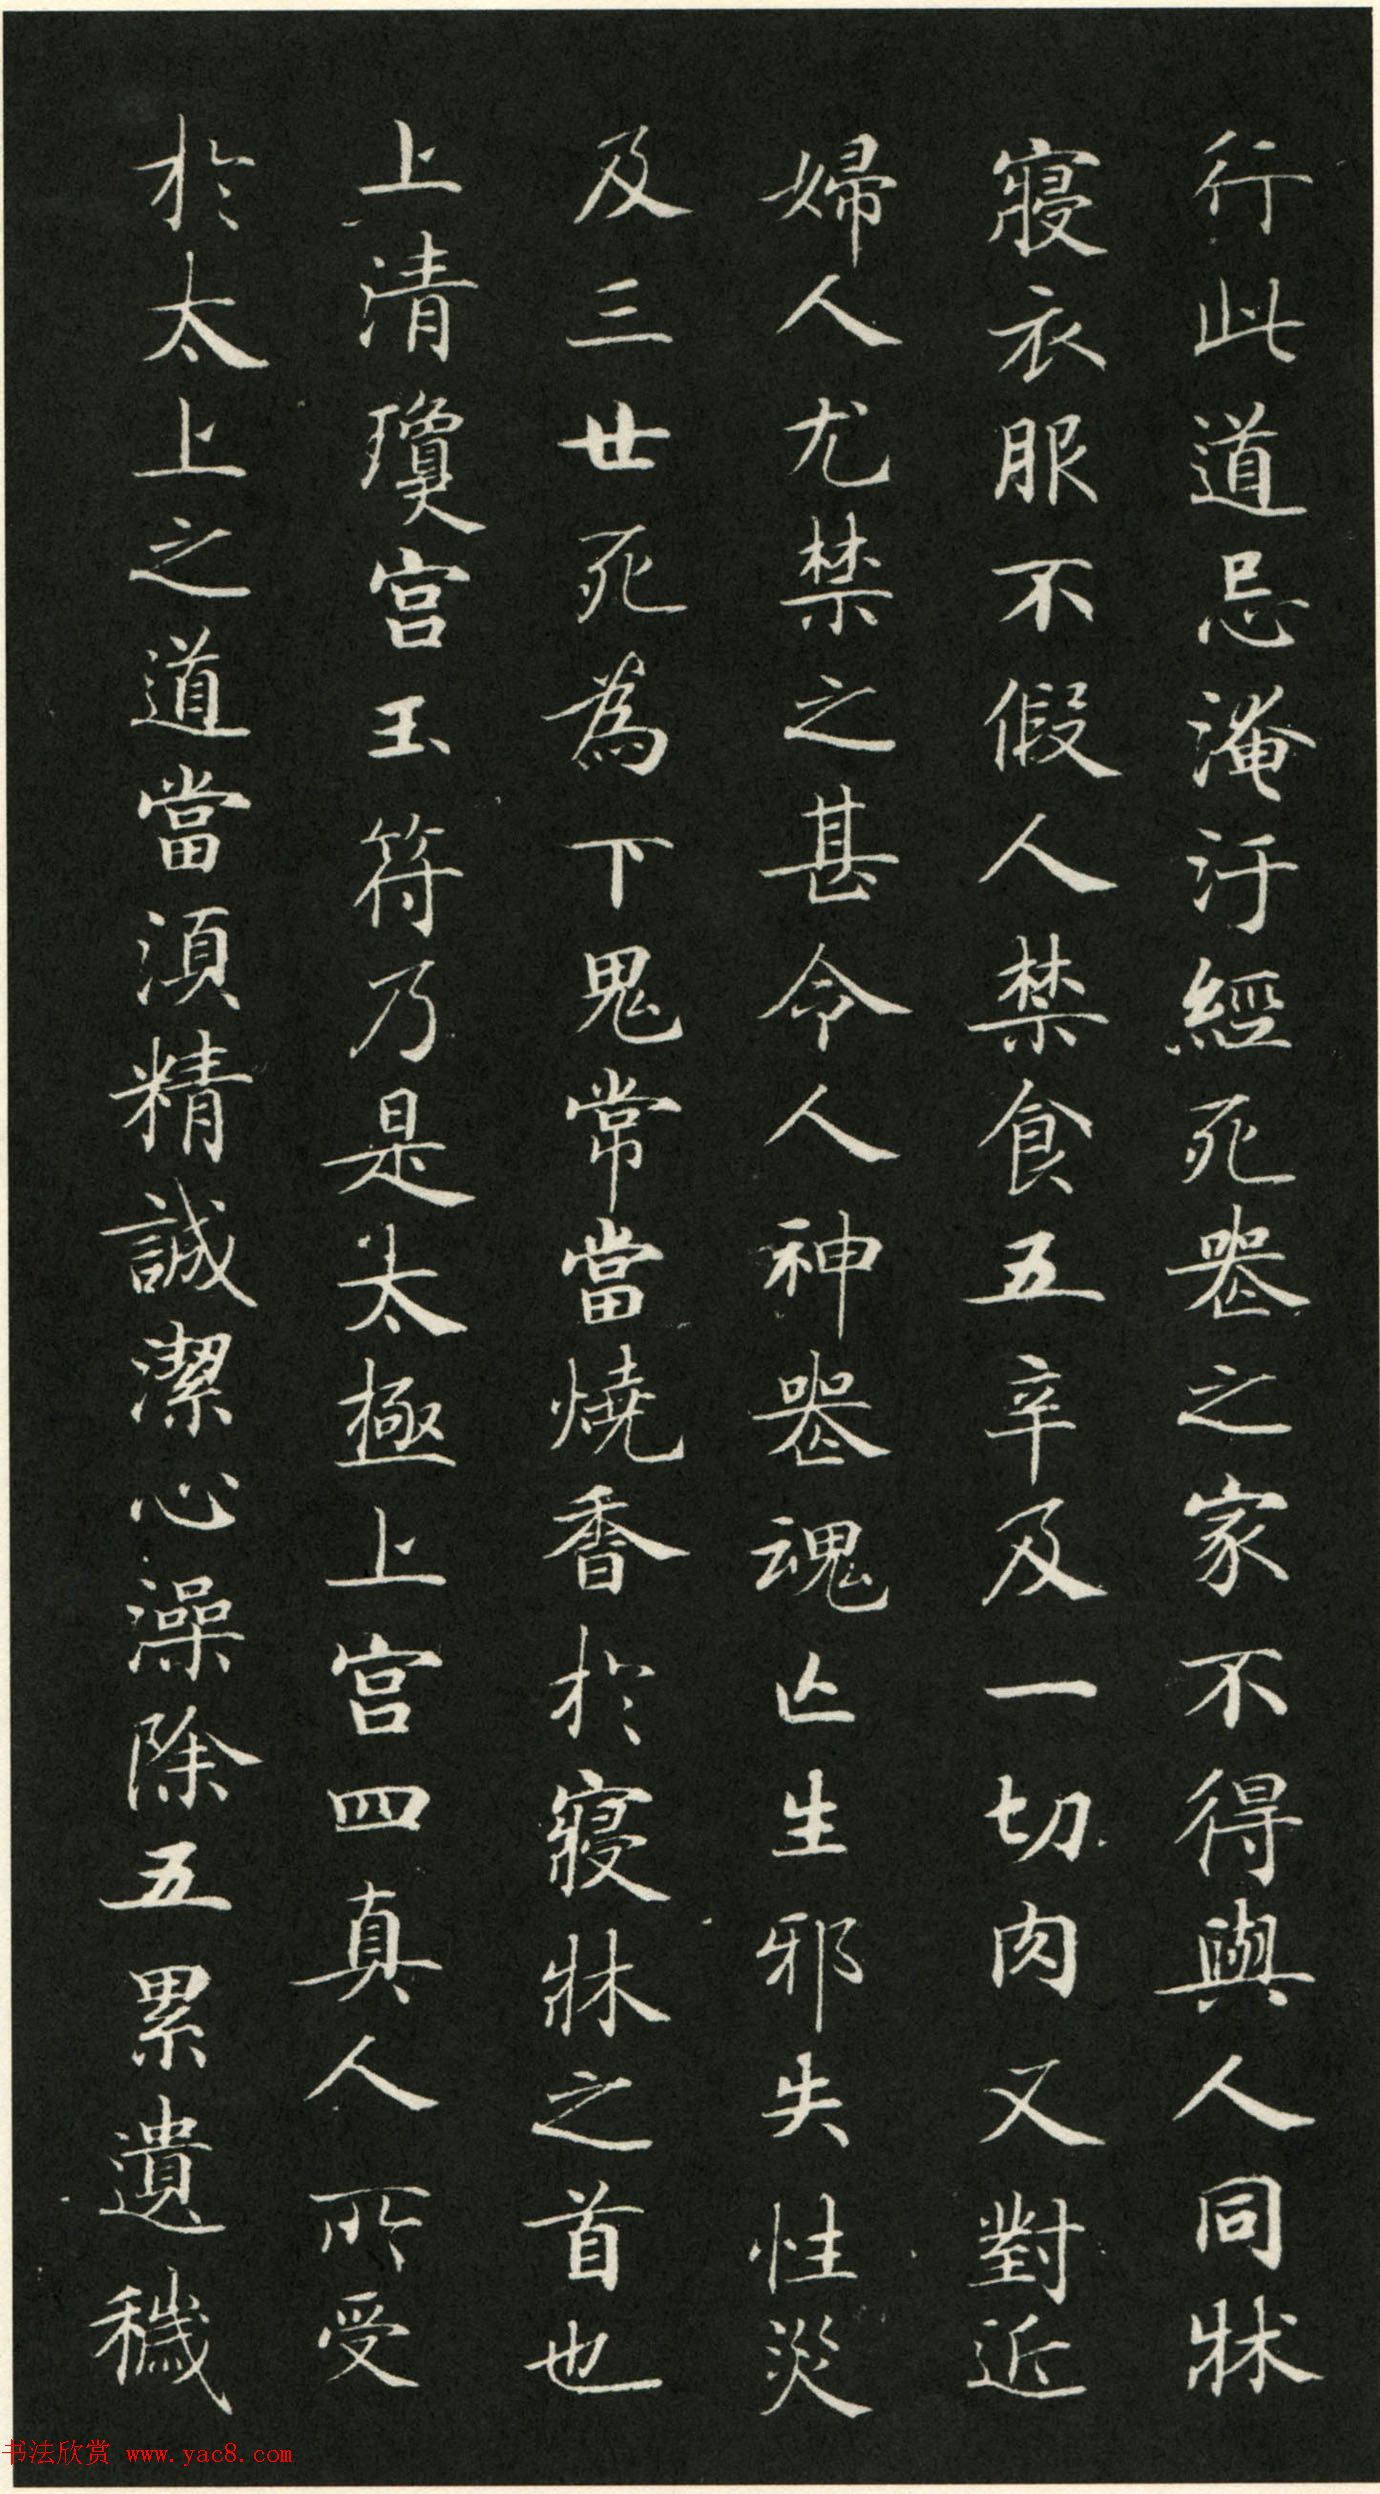 行此道忌淹汙經死喪之家不得與人同牀
寢衣服不假人禁食五辛及一切肉又對近
婦人尤禁之甚令人神喪魂亡生邪失性災
及三世死為下鬼常當燒香於寢牀之首也
上清瓊宮玉符乃是太極上宮四真人所受
於太上之道當須精誠潔心澡除五累遺穢
书法欣赏 www.yac8.com